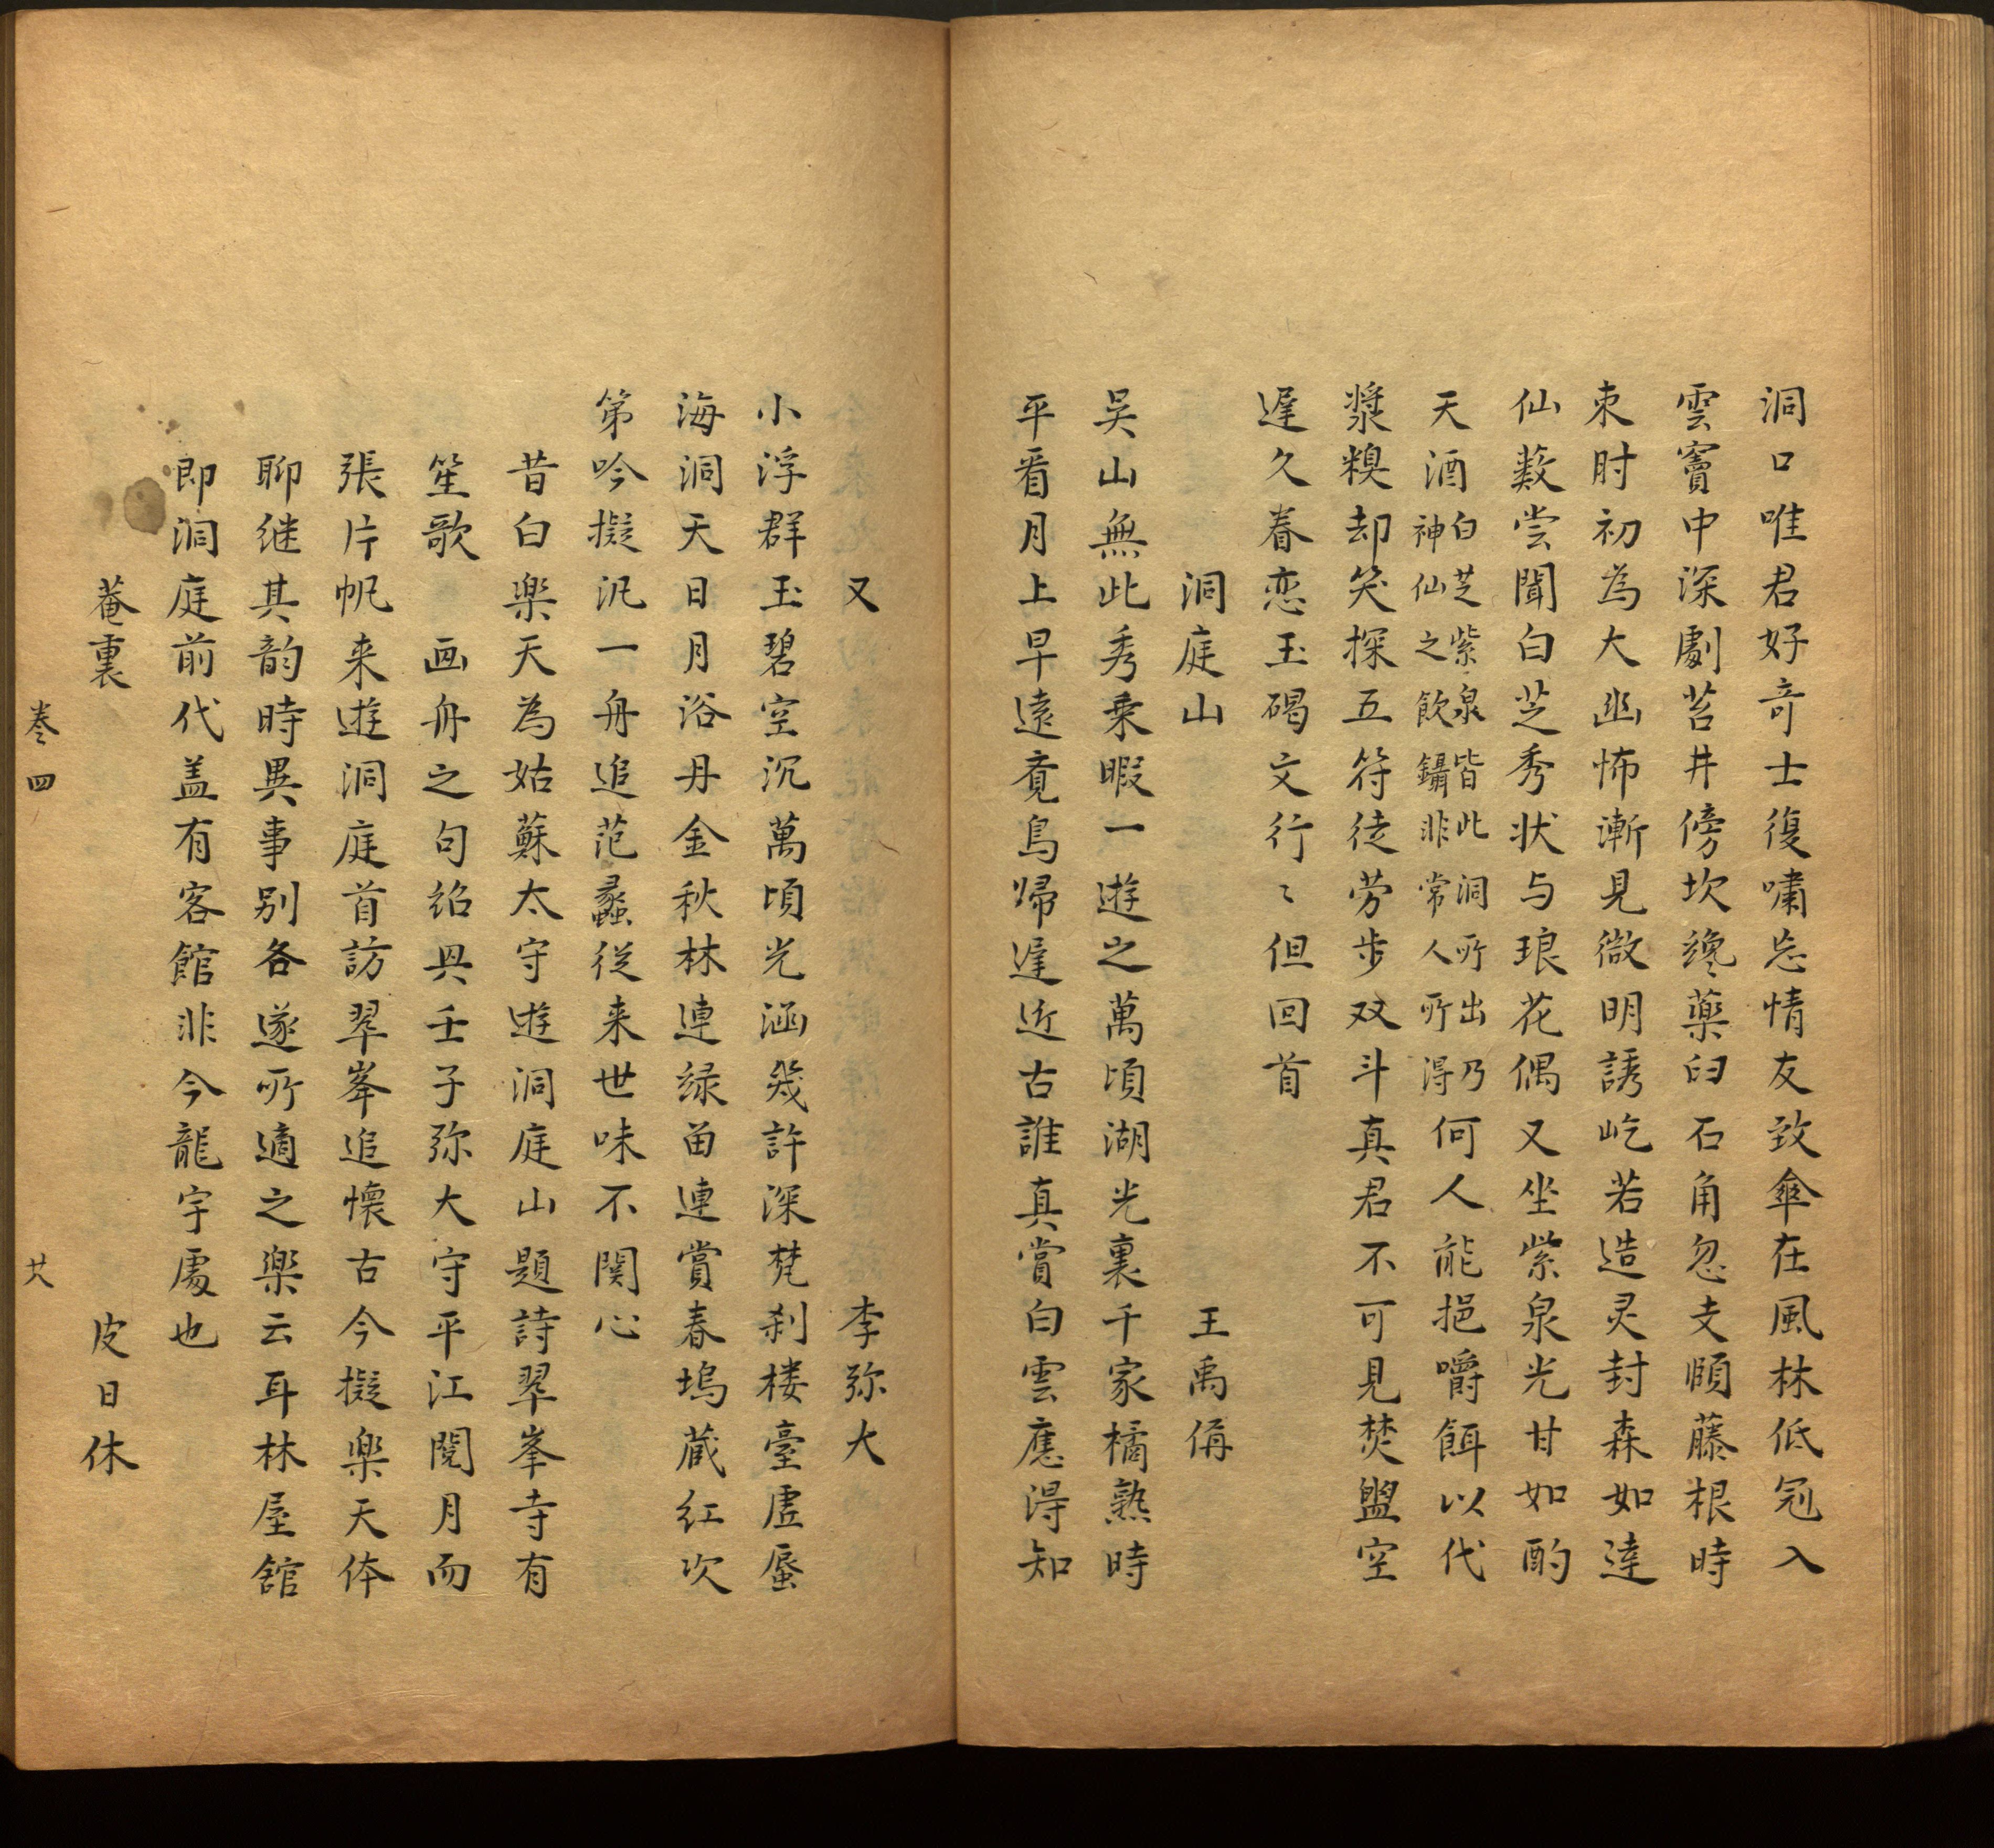 洞口唯君好竒士復嘯忘情友致傘在風林低冠入
雲竇中深劚苔井傍坎纔藥臼石角忽支頤藤根時
束肘初為大幽怖漸見微明誘屹若造灵封森如達
仙藪嘗聞白芝秀状与琅花偶又坐紫泉光甘如酌
天酒白芝紫泉皆此洞所出乃神仙之飲鑷非常人所得何人能挹嚼餌以代
漿糗却笑探五符徒劳步双斗真君不可見焚盥空
遲久眷恋玉碣文行〻但回首
洞庭山　王禹偁
吴山無此秀乗暇一遊之萬頃湖光裏千家橘熟時
平看月上早遠覔鳥歸遲近古誰真賞白雲應得知
又　李弥大
小浮群玉碧空沉萬頃光涵幾許深梵刹楼臺虚蜃
海洞天日月浴丹金秋林連绿留連賞春塢蔵红次
第吟擬汎一舟追范蠡從来世味不関心
昔白楽天為姑蘇太守遊洞庭山題詩翠峯寺有
笙歌　画舟之句紹興壬子弥大守平江閱月而
張片帆来遊洞庭首訪翠峯追懐古今擬楽天体
聊继其韵時異事别各遂所適之楽云耳林屋舘
即洞庭前代盖有客館非今龍宇處也
菴裏　皮日休
巻四　廿八